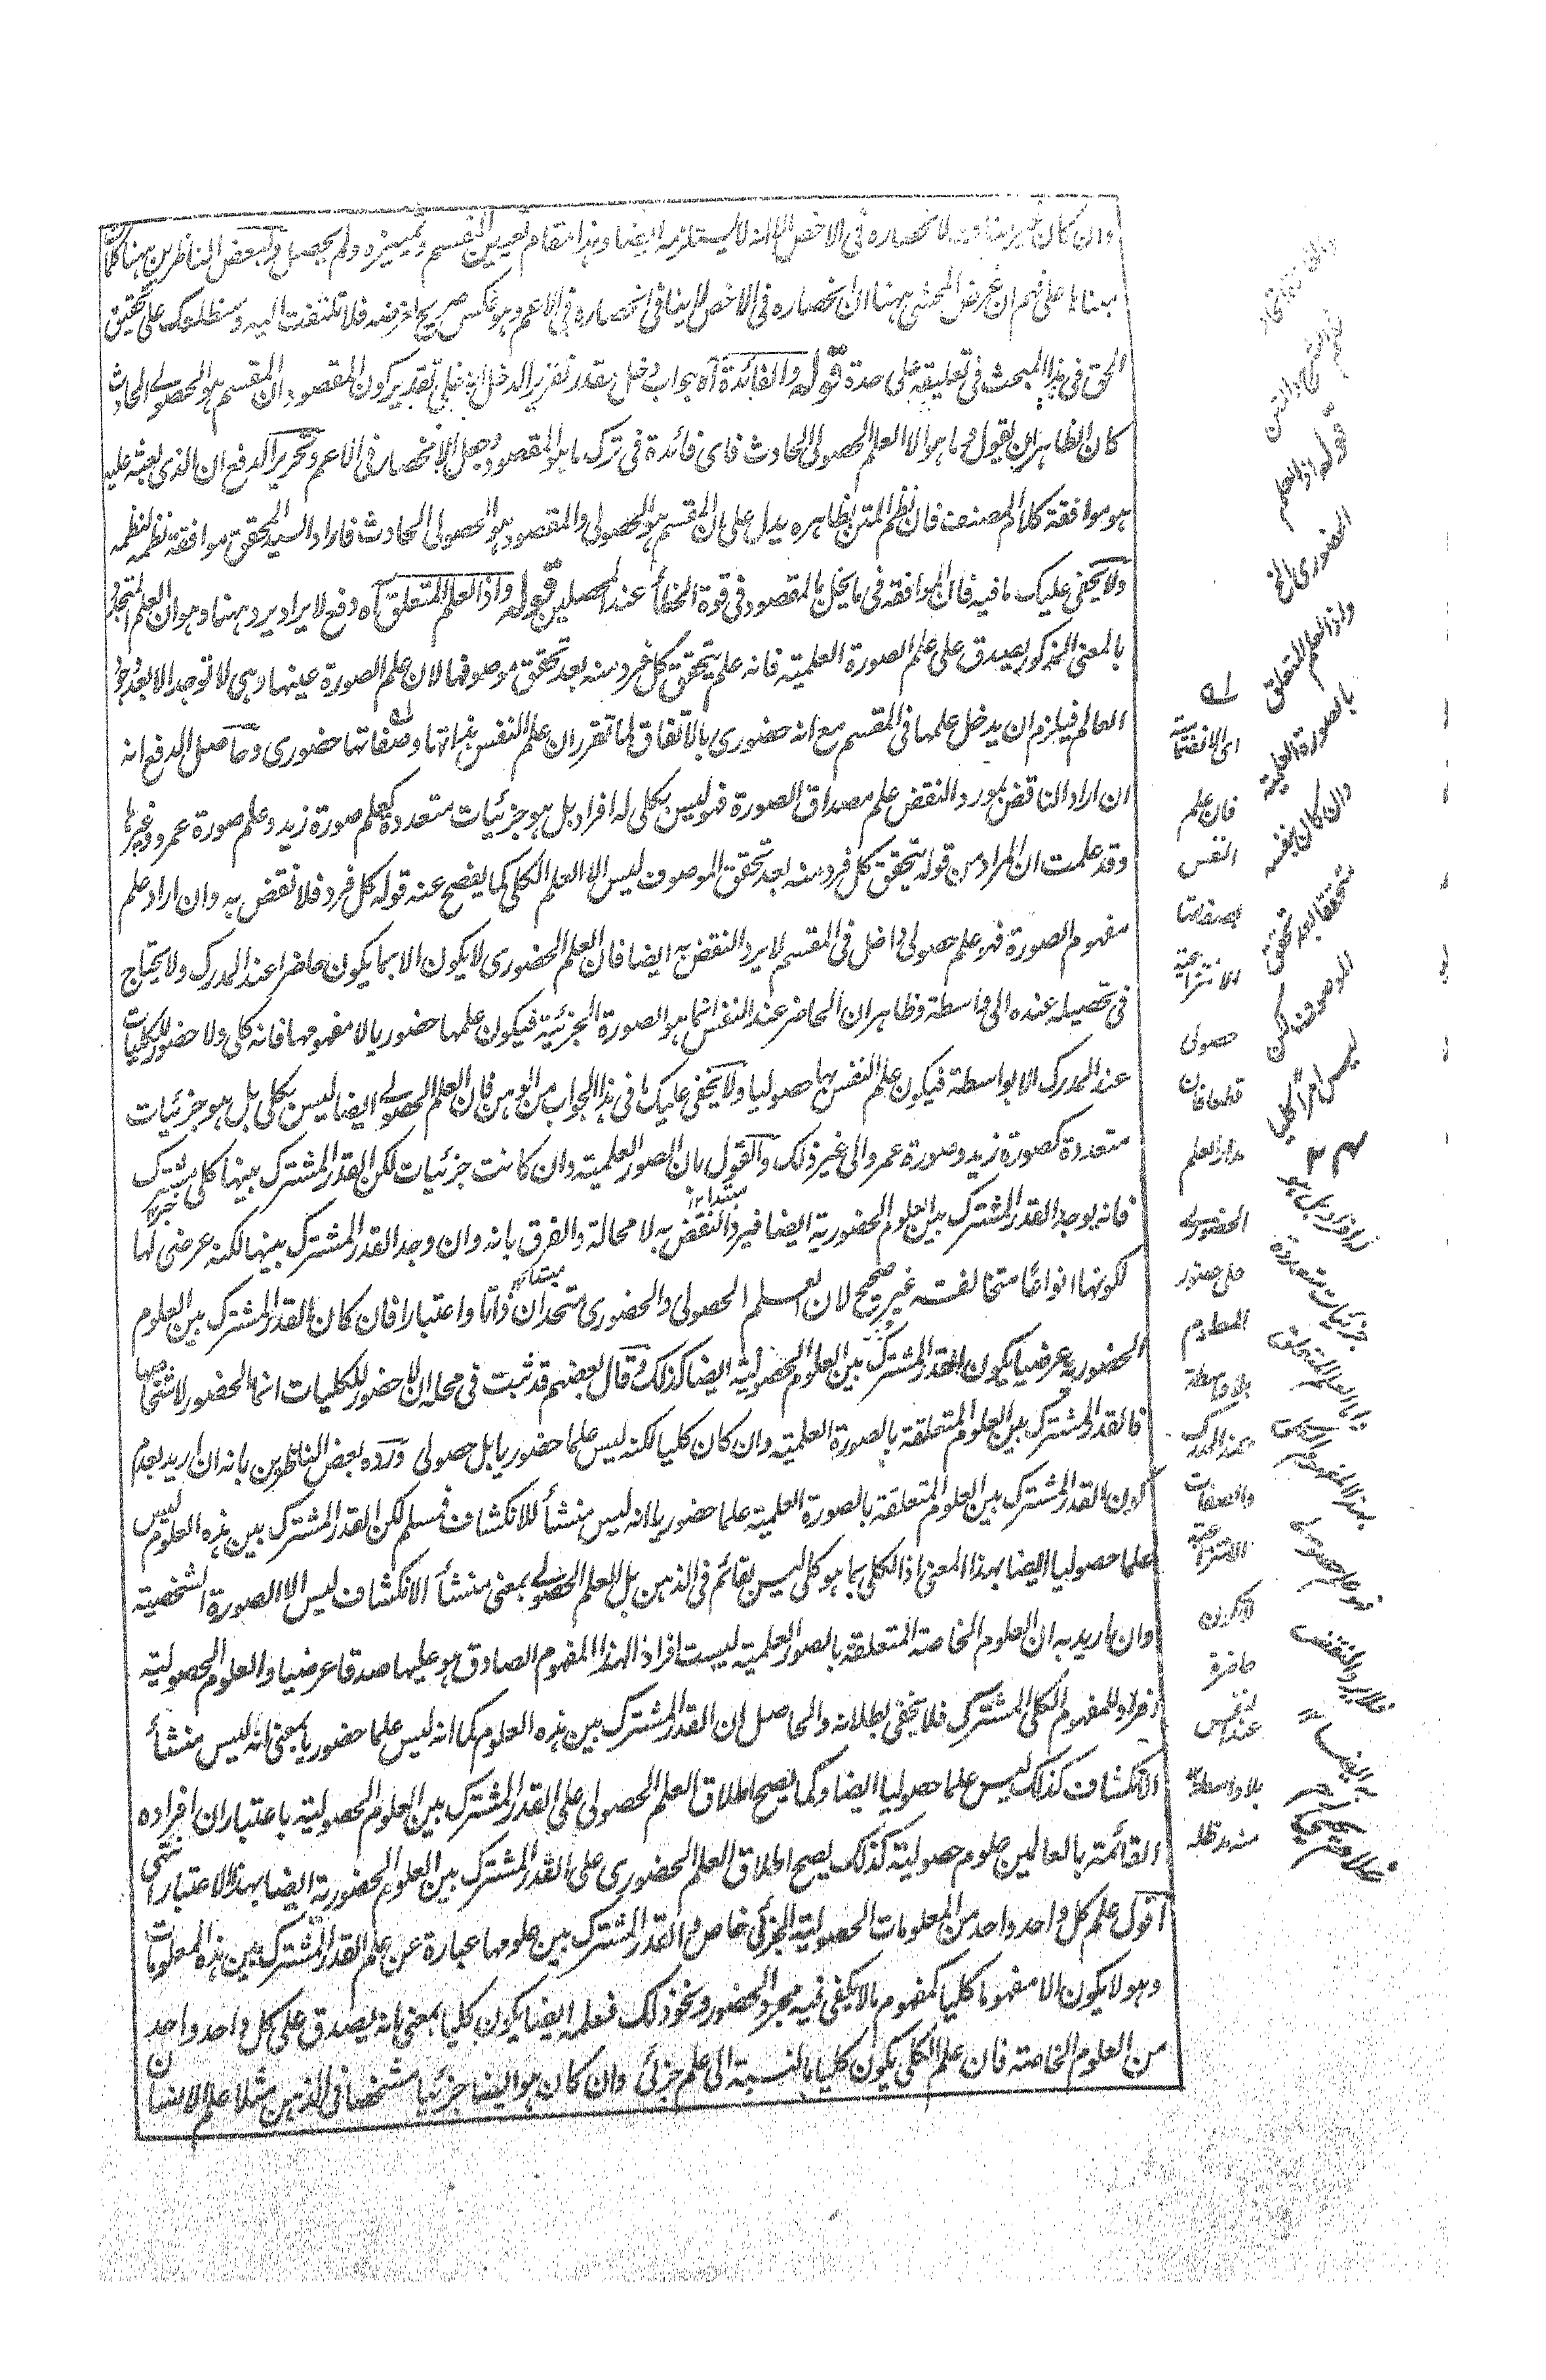 وان كان غير مناف لانحصاره فى الاخص الا انه لا يستلزمه ايضا وهذا مقام تعيين المقسم وتمييزه ولم يحصل ولبعض الناظرين ههنا كلام
مبناه على فهم ان غرض المحشى ههنا ان انحصاره فى الاخص لا ينافى انحصاره فى الاعم وهو عكس صريح لغرضه فلا تلتفت اليه وسنطلعك على تحقيق
الحق فى هذا المبحث فى تعليقة على حدة قوله والفائدة آه جواب دخل مقدر تقرير الدخل انه على تقدير كون المقصود ان المقسم هو الحصولى الحادث
كان الظاهر ان يقول ما هو الا العلم الحصولى الحادث فاى فائدة فى ترك ما هو المقصود وجعل الانحصار فى الاعم وتحرير الدفع ان الذى بعثه عليه
هو موافقة كلام المصنف فان نظم المتن بظاهره يدل على ان المقسم هو الحصولى والمقصود هو الحصولى الحادث فاراد السيد المحقق موافقة نظمه لنظمه
ولا يخفى عليك ما فيه فان الموافقة فى ما يخل بالمقصود فى قوة الخطأ عند المحصلين قوله واذ العلم المتعلق آه دفع لايراد يرد ههنا وهو ان العلم المتجدد
بالمعنى المذكور يصدق على علم الصورة العلمية فانه علم يتحقق كل فرد منه بعد تحقق موصوفها لان علم الصورة عينها وهى لا توجد الا بعد وجود
العالم فيلزم ان يدخل علمها فى المقسم مع انه حضورى بالاتفاق لما تقرر ان علم النفس بذاتها وصفاتها حضورى وحاصل الدفع انه
ان اراد الناقض بمورد النقض علم مصداق الصورة فهو ليس بكلى له افراد بل هو جزئيات متعددة كعلم صورة زيد وعلم صورة عمرو وغيرها
وقد علمت ان المراد من قوله يتحقق كل فرد منه بعد تحقق الموصوف ليس الا العلم الكلى كما يفصح عنه قوله كل فرد فلا نقض به وان اراد علم
مفهوم الصورة فهو علم حصولى داخل فى المقسم لا يرد النقض به ايضا فان العلم الحضورى لا يكون الا بما يكون حاضرا عند المدرك ولا يحتاج
فى تحصيله عنده الى واسطة وظاهر ان الحاضر عند النفس انما هو الصورة الجزئية فيكون علمها حضوريا لا مفهومها فانه كلى ولا حضور للكليات
عند المدرك الا بواسطة فيكون علم النفس بها حصوليا ولا يخفى عليك ما فى هذا الجواب من الوهن فان العلم الحصولى ايضا ليس بكلى بل هو جزئيات
متعددة كصورة زيد وصورة عمرو الى غير ذلك والقول بان الصور العلمية وان كانت جزئيات لكن القدر المشترك بينها كلى مشترك
فانه يوجد القدر المشترك بين العلوم الحضورية ايضا فيرد النقض به لا محالة والفرق بانه وان وجد القدر المشترك بينها لكنه عرضى لها
لكونها انواعا متخالفة غير صحيح لان العلم الحصولى والحضورى متحدان ذاتا واعتبارا فان كان القدر المشترك بين العلوم
الحضورية عرضيا يكون القدر المشترك بين العلوم الحصولية ايضا كذلك وقال بعضهم قد ثبت فى محله ان لا حضور للكليات انما الحضور لاشخاصها
فالقدر المشترك بين العلوم المتعلقة بالصورة العلمية وان كان كليا لكنه ليس علما حضوريا بل حصولى ورده بعض الناظرين بانه ان اريد بعدم
كون القدر المشترك بين العلوم المتعلقة بالصورة العلمية علما حضوريا انه ليس منشأ للانكشاف فمسلم لكن القدر المشترك بين هذه العلوم ليس
علما حصوليا ايضا بهذا المعنى اذ الكلى بما هو كلى ليس بقائم فى الذهن بل العلم الحصولى بمعنى منشأ الانكشاف ليس الا الصورة الشخصية
وان اريد به ان العلوم الخاصة المتعلقة بالصور العلمية ليست افرادا لهذا المفهوم الصادق هو عليها صدقا عرضيا والعلوم الحصولية
افراد للمفهوم الكلى المشترك فلا يخفى بطلانه والحاصل ان القدر المشترك بين هذه العلوم كما انه ليس علما حضوريا بمعنى انه ليس منشأ
الانكشاف كذلك ليس علما حصوليا ايضا وكما يصح اطلاق العلم الحصولى على القدر المشترك بين العلوم الحصولية باعتبار ان افراده
القائمة بالعالمين علوم حصولية كذلك يصح اطلاق العلم الحضورى على القدر المشترك بين العلوم الحضورية ايضا بهذا الاعتبار انتهى
اقول علم كل واحد واحد من المعلومات الحصولية الجزئى خاص والقدر المشترك بين علومها عبارة عن علم القدر المشترك بين هذه المعلومات
وهو لا يكون الا مفهوما كليا كمفهوم ما لا يكفى فيه مجرد الحضور ونحو ذلك فعلمه ايضا يكون كليا بمعنى انه يصدق على كل واحد واحد
من العلوم الخاصة فان علم الكلى يكون كليا بالنسبة الى علم جزئى وان كان هو ايضا جزئيا مشخصا فى الذهن مثلا علم الانسان
قوله اذ العلم
الحضورى الخ
واذ العلم المتعلق
بالصورة العلمية
وان كان بنفسه
متحققا بعد تحقق
الموصوف لكن
ليس امرا كليا
له افراد بل هو
جزئيات متعددة
واما العلم المتعلق
فهو علم حصولى
فلا يرد النقض
به ايضا
له
اى الانضمامية
فان علم
النفس
بصفاتها
الانتزاعية
حصولى
قطعا فان
مدار العلم
الحضورى
على حضور
المعلوم
بلا واسطة
عند المدرك
والصفات
الانتزاعية
لا تكون
حاضرة
عند النفس
بلا واسطة
منه مد ظله